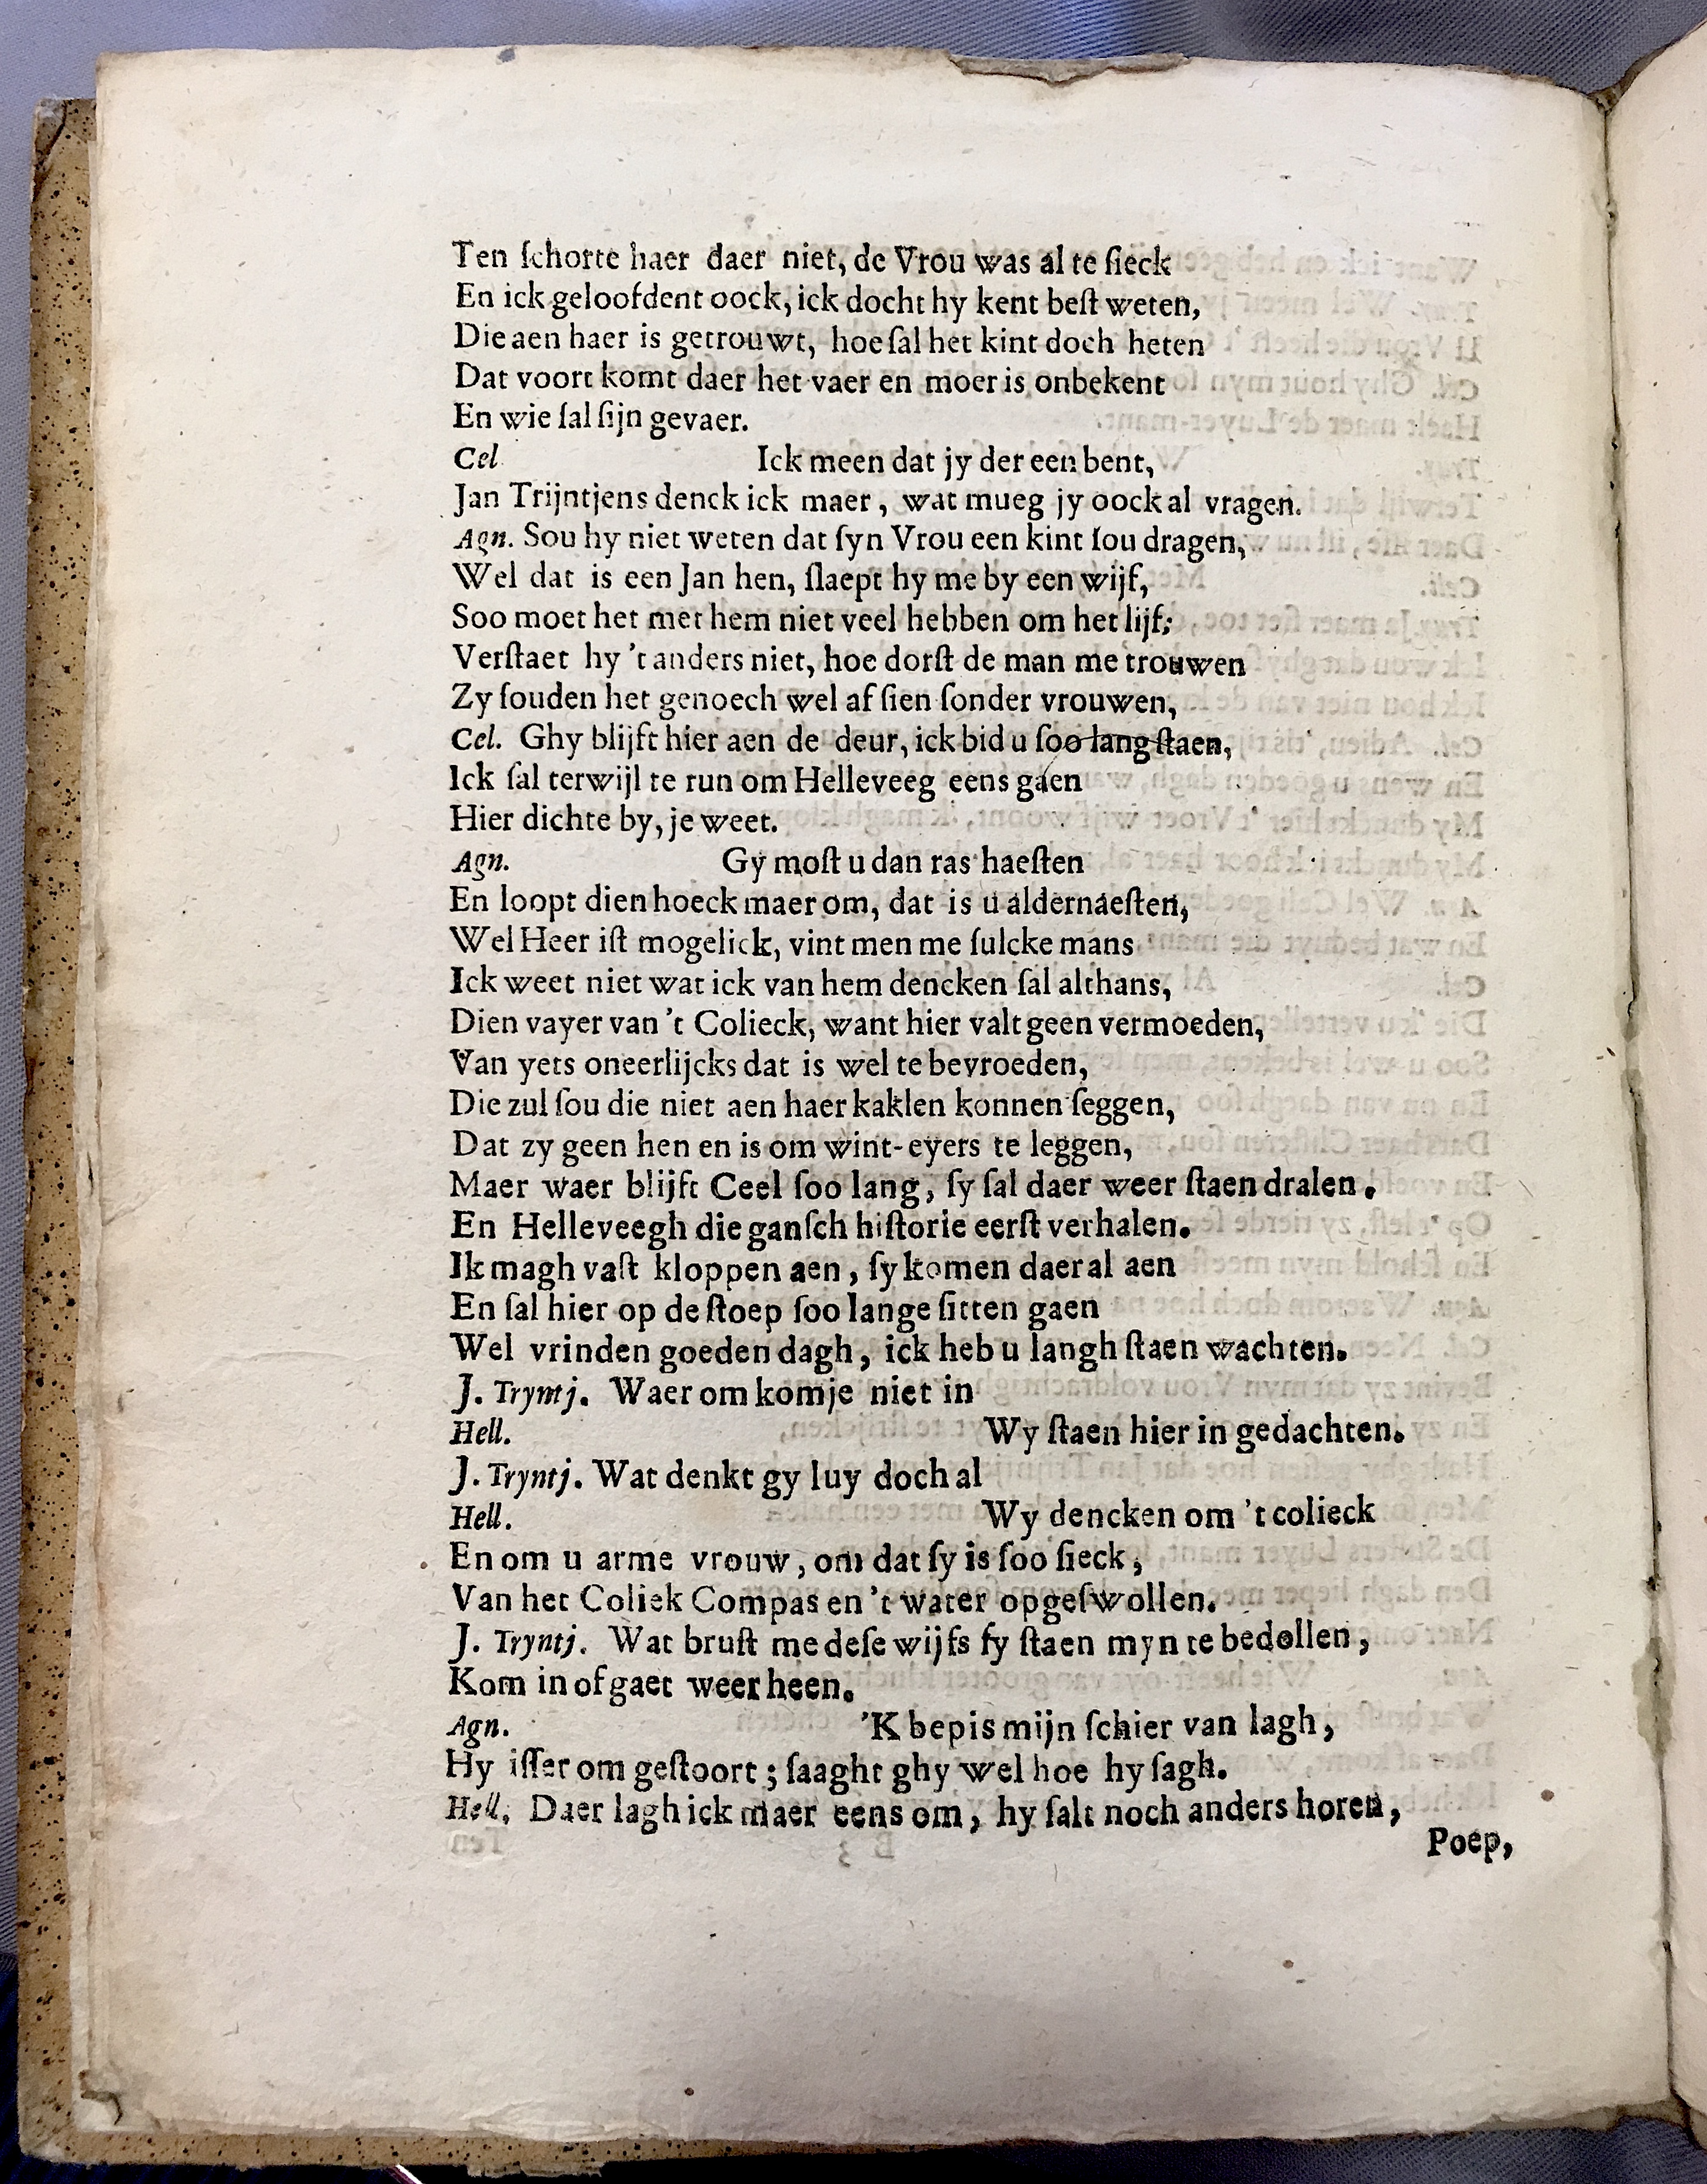 Ten ſchorte haer daer niet, de Vrou was al te ſieck
En ick geloofdent oock, ick docht hy kent beſt weten,
Die aen haer is getrouwt, hoe ſal het kint doch heten
Dat voort komt daer het vaer en moer is onbekent
En wie ſal ſijn gevaer.
Cel Ick meen dat jy der een bent,
Jan Trijntjens denck ick maer, wat mueg jy oock al vragen.
Agn. Sou hy niet weten dat ſyn Vrou een kint ſou dragen,
Wel dat is een Jan hen, ſlaept hy me by een wijf,
Soo moet het met hem niet veel hebben om het lijf;
Verſtaet hy 't anders niet, hoe dorſt de man me trouwen
Zy ſouden het genoech wel af ſien ſonder vrouwen,
Cel. Ghy blijft hier aen de deur, ick bid u ſoo lang ſtaen,
Ick ſal terwijl te run om Helleveeg eens gaen
Hier dichte by, je weet.
Agn. Gy moſt u dan ras haeſten
En loopt dien hoeck maer om, dat is u aldernaeſten,
Wel Heer iſt mogelick, vint men me ſulcke mans
Ick weet niet wat ick van hem dencken ſal althans,
Dien vayer van 't Colieck, want hier valt geen vermoeden,
Van yets oneerlijcks dat is wel te bevroeden,
Die zul ſou die niet aen haer kaklen konnen ſeggen,
Dat zy geen hen en is om wint-eyers te leggen,
Maer waer blijft Ceel ſoo lang, ſy ſal daer weer ſtaen dralen.
En Helleveegh die ganſch hiſtorie eerſt verhalen.
Ik magh vaſt kloppen aen, ſy komen daer al aen
En ſal hier op de ſtoep ſoo lange ſitten gaen
Wel vrinden goeden dagh, ick heb u langh ſtaen wachten.
J. Tryntj. Waerom komje niet in
Hell. Wy ſtaen hier in gedachten.
J. Tryntj. Wat denkt gy luy doch al
Hell. Wy dencken om 't colieck
En om u arme vrouw, om dat ſy is ſoo ſieck,
Van het Coliek Compas en 't water opgeſwollen.
J. Tryntj. Wat bruſt me deſe wijfs ſy ſtaen myn te bedollen,
Kom in of gaet weer heen.
Agn. 'K bepis mijn ſchier van lagh,
Hy iſſer om geſtoort; ſaaght ghy wel hoe hy ſagh.
Hell. Daer lagh ick maer eens om, hy ſalt noch anders horen,
Poep,